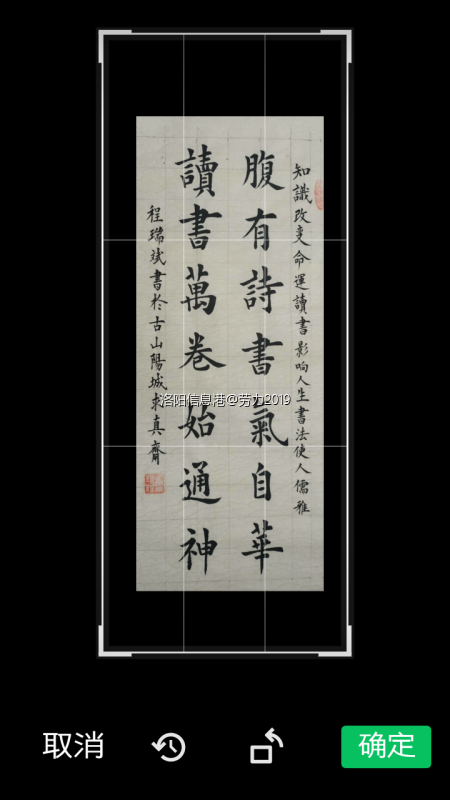 知識改变命運讀書影响人生書法使人儒雅
腹有詩書氣自華
讀書萬卷始通神
程瑞斌書於古山陽城求真齋
洛阳信息港@劳力2019
取消
确定